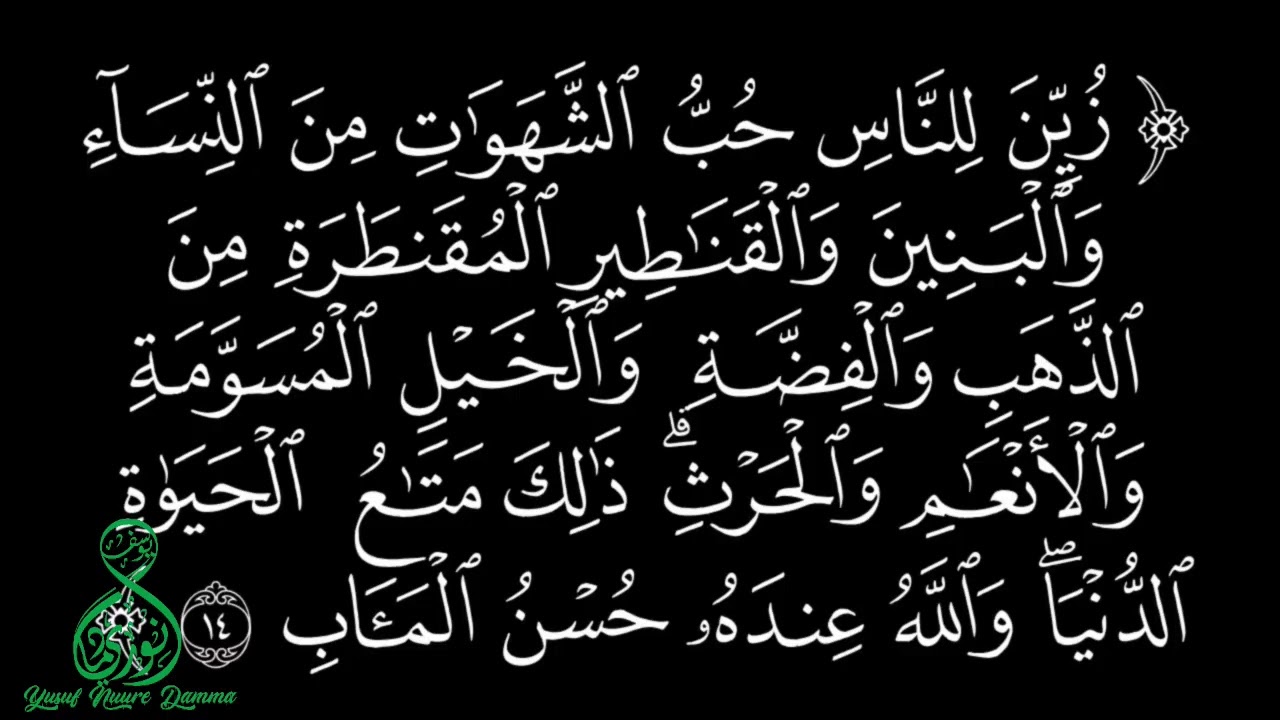 ﴿ زُيِّنَ لِلنَّاسِ حُبُّ ٱلشَّهَوَٰتِ مِنَ ٱلنِّسَآءِ
وَٱلْبَنِينَ وَٱلْقَنَٰطِيرِ ٱلْمُقَنطَرَةِ مِنَ
ٱلذَّهَبِ وَٱلْفِضَّةِ وَٱلْخَيْلِ ٱلْمُسَوَّمَةِ
وَٱلْأَنْعَٰمِ وَٱلْحَرْثِ ۗ ذَٰلِكَ مَتَٰعُ ٱلْحَيَوٰةِ
ٱلدُّنْيَا ۖ وَٱللَّهُ عِندَهُۥ حُسْنُ ٱلْمَـَٔابِ ١٤
يوسف
Yusuf Nuure Damma